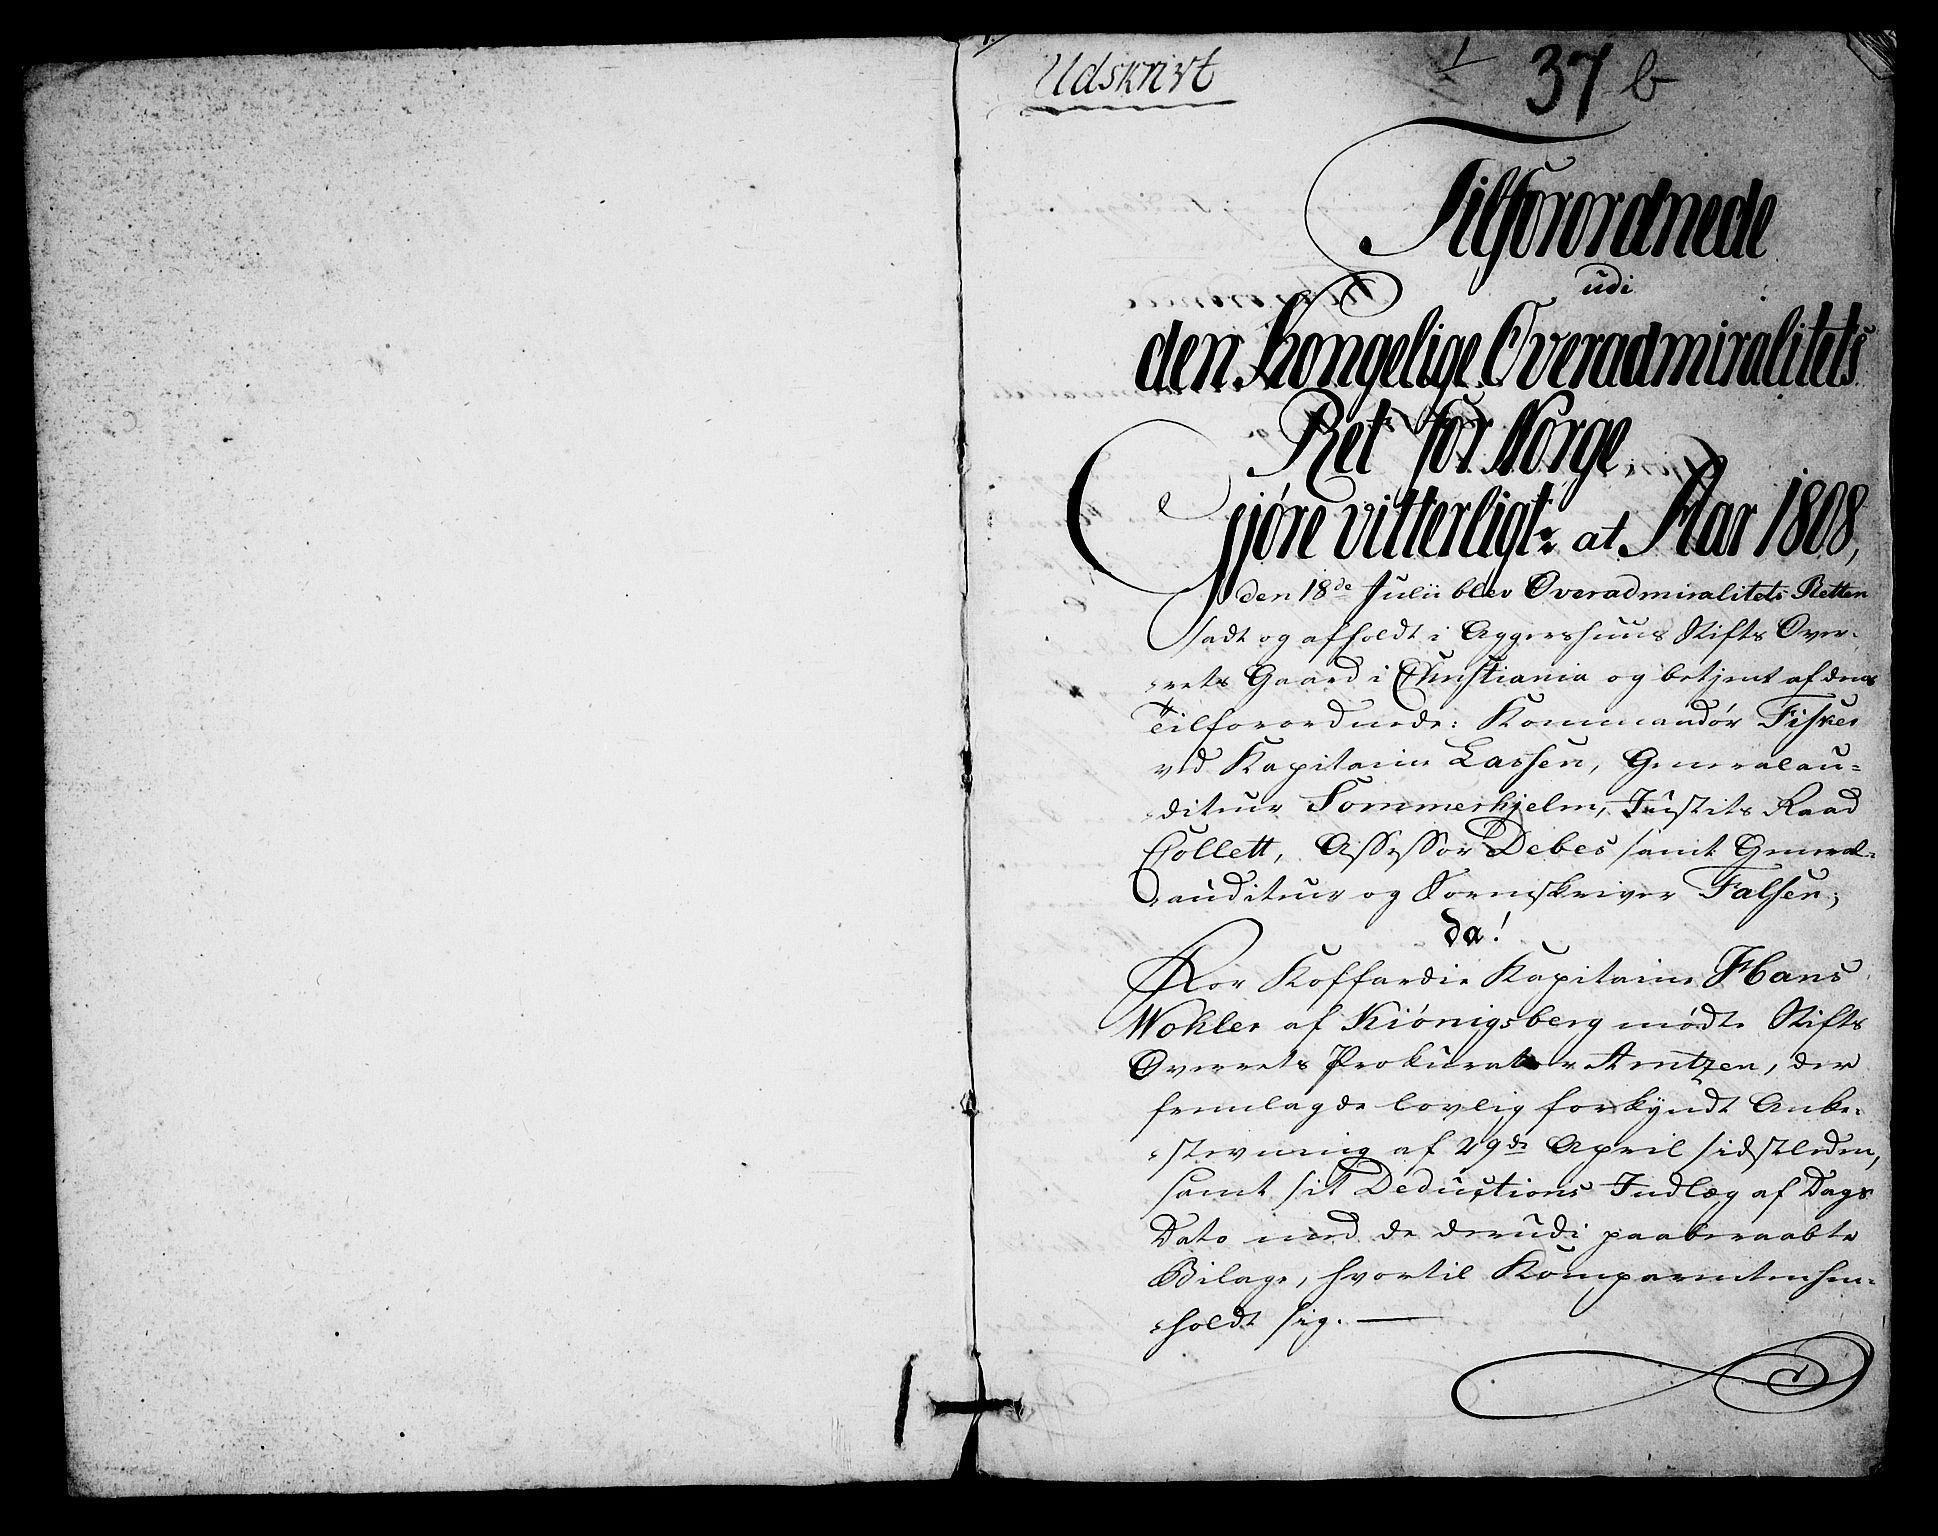 Udskrivt
1
37 b
Tilforordnede
udi
den Kongelige Overadmiralitets
Ret for Norge,
Gjøre vitterligt: at Aar 1808,
den 18de Julii blev Overadmiralitets Retten
sadt og afholdt i Aggershuus Stifts Over-
-rets Gaard i Christiania og betjent af dens
Tilforordnede: Kommandør Fisker
ved Kapitain Lassen, Generalau=
-diteur Sommerhjelm, Justits Raad
Collett, Assessor Debes samt General-
-auditeur og Sorenskriver Falsen;
da!
For Koffardie Kapitain Hans
Wohler af Kiönigsberg mødte Stifts
Overrets Prokurator Arntzen, der
fremlagde lovlig forkyndt Anke-
-stevning af 29de April sidstleden,
samt sit Deductions Indlæg af Dags
Dato med de derudi paaberaabte
Bilage, hvortil Komparenten hen-
-holdt sig.